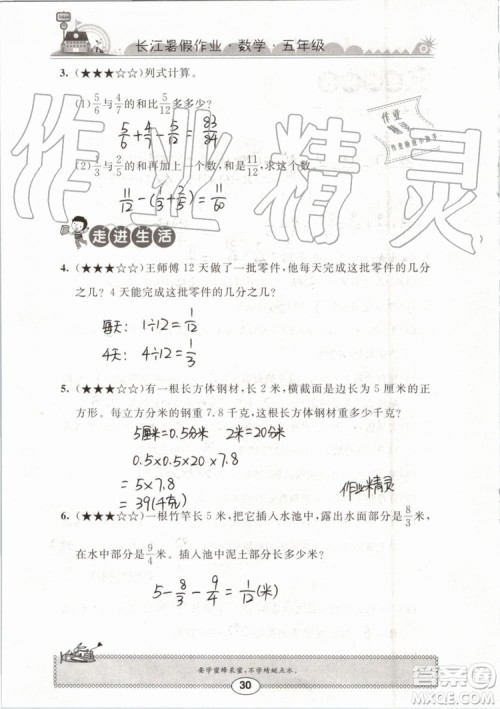 长江暑假作业·数学·五年级
3. (★★★☆☆)列式计算。
(1) 5/6 与 4/7 的和比 5/12 多多少?
5/6 + 4/7 - 5/12 = 83/84
(2) 1/3 与 2/5 的和再加上一个数,和是 11/12,求这个数。
11/12 - (1/3 + 2/5) = 11/60
走进生活
4. (★★★☆☆)王师傅 12 天做了一批零件,他每天完成这批零件的几分
之几? 4 天能完成这批零件的几分之几?
每天: 1÷12 = 1/12
4天: 4÷12 = 1/3
5. (★★★☆☆)有一根长方体钢材,长 2 米,横截面是边长为 5 厘米的正
方形。每立方分米的钢重 7.8 千克,这根钢材重多少千克?
5厘米=0.5分米 2米=20分米
0.5×0.5×20×7.8
=5×7.8
=39(千克)
作业精灵
6. (★★★☆☆)一根竹竿长 5 米,把它插入水池中,露出水面部分是 8/3 米,
在水中部分是 9/4 米。插入池中泥土部分长多少米?
5 - 8/3 - 9/4 = 1/12 (米)
要学蜜蜂采蜜,不学蜻蜓点水。
30
作业精灵
作业